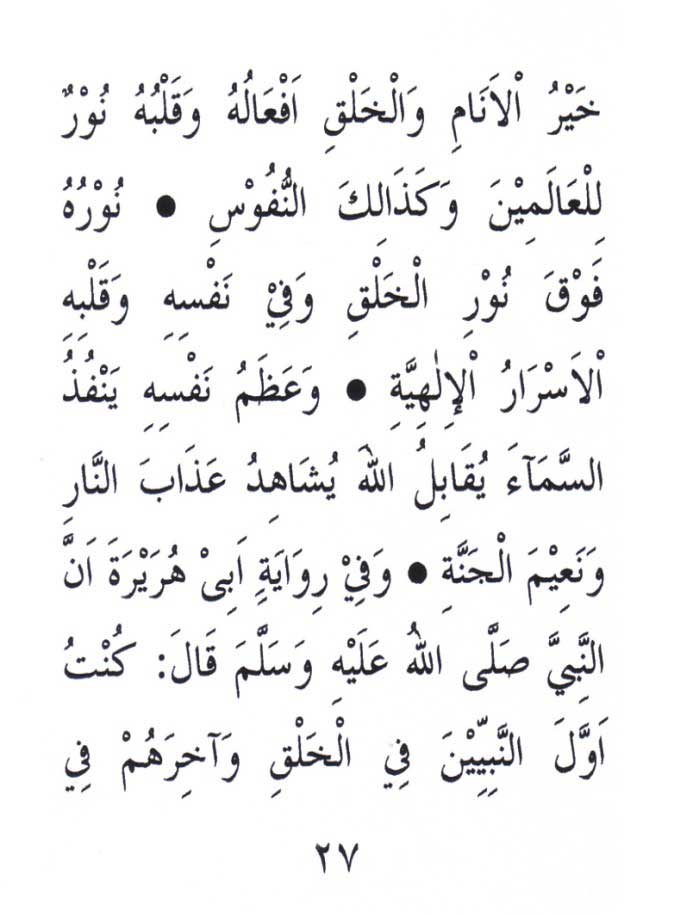 خَيْرُ اْلاَنَامِ وَالْخَلْقِ اَفْعَالُهُ وَقَلْبُهُ نُوْرٌ
لِلْعَالَمِيْنَ وَكَذَالِكَ النُّفُوْسِ ● نُوْرُهُ
فَوْقَ نُوْرِ الْخَلْقِ وَفِيْ نَفْسِهِ وَقَلْبِهِ
اْلاَسْرَارُ اْلإِلٰهِيَّةِ ● وَعَظَمُ نَفْسِهِ يَنْفُذُ
السَّمَآءَ يُقَابِلُ اللهَ يُشَاهِدُ عَذَابَ النَّارِ
وَنَعِيْمَ الْجَنَّةِ ● وَفِيْ رِوَايَةٍ اَبِىْ هُرَيْرَةَ اَنَّ
النَّبِيَّ صَلَّى اللهُ عَلَيْهِ وَسَلَّمَ قَالَ: كُنْتُ
اَوَّلَ النَّبِيِّيْنَ فِي الْخَلْقِ وَآخِرَهُمْ فِي
٢٧